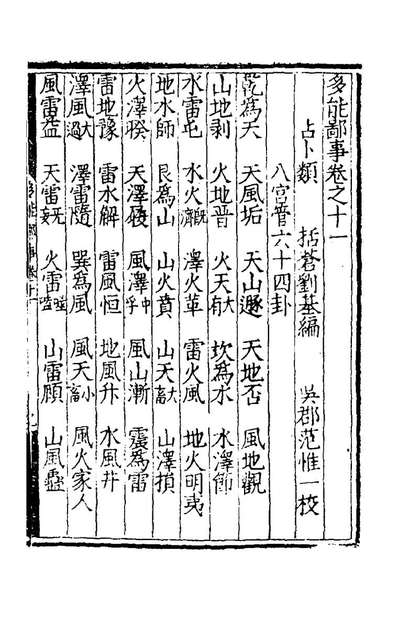 多能鄙事卷之十一
占卜類 括蒼劉基編 吳郡范惟一校
八宮晉六十四卦
乾為天 天風垢 天山遯 天地否 風地觀
山地剥 火地晉 火天大有 坎為水 水澤節
水雷屯 水火旣濟 澤火革 雷火風 地火明夷
地水師 艮為山 山火賁 山天大畜 山澤損
火澤睽 天澤履 風澤中孚 風山漸 震為雷
雷地豫 雷水解 雷風恒 地風升 水風井
澤風大過 澤雷隨 巽為風 風天小畜 風火家人
風雷益 天雷无妄 火雷噬嗑 山雷頤 山風蠱